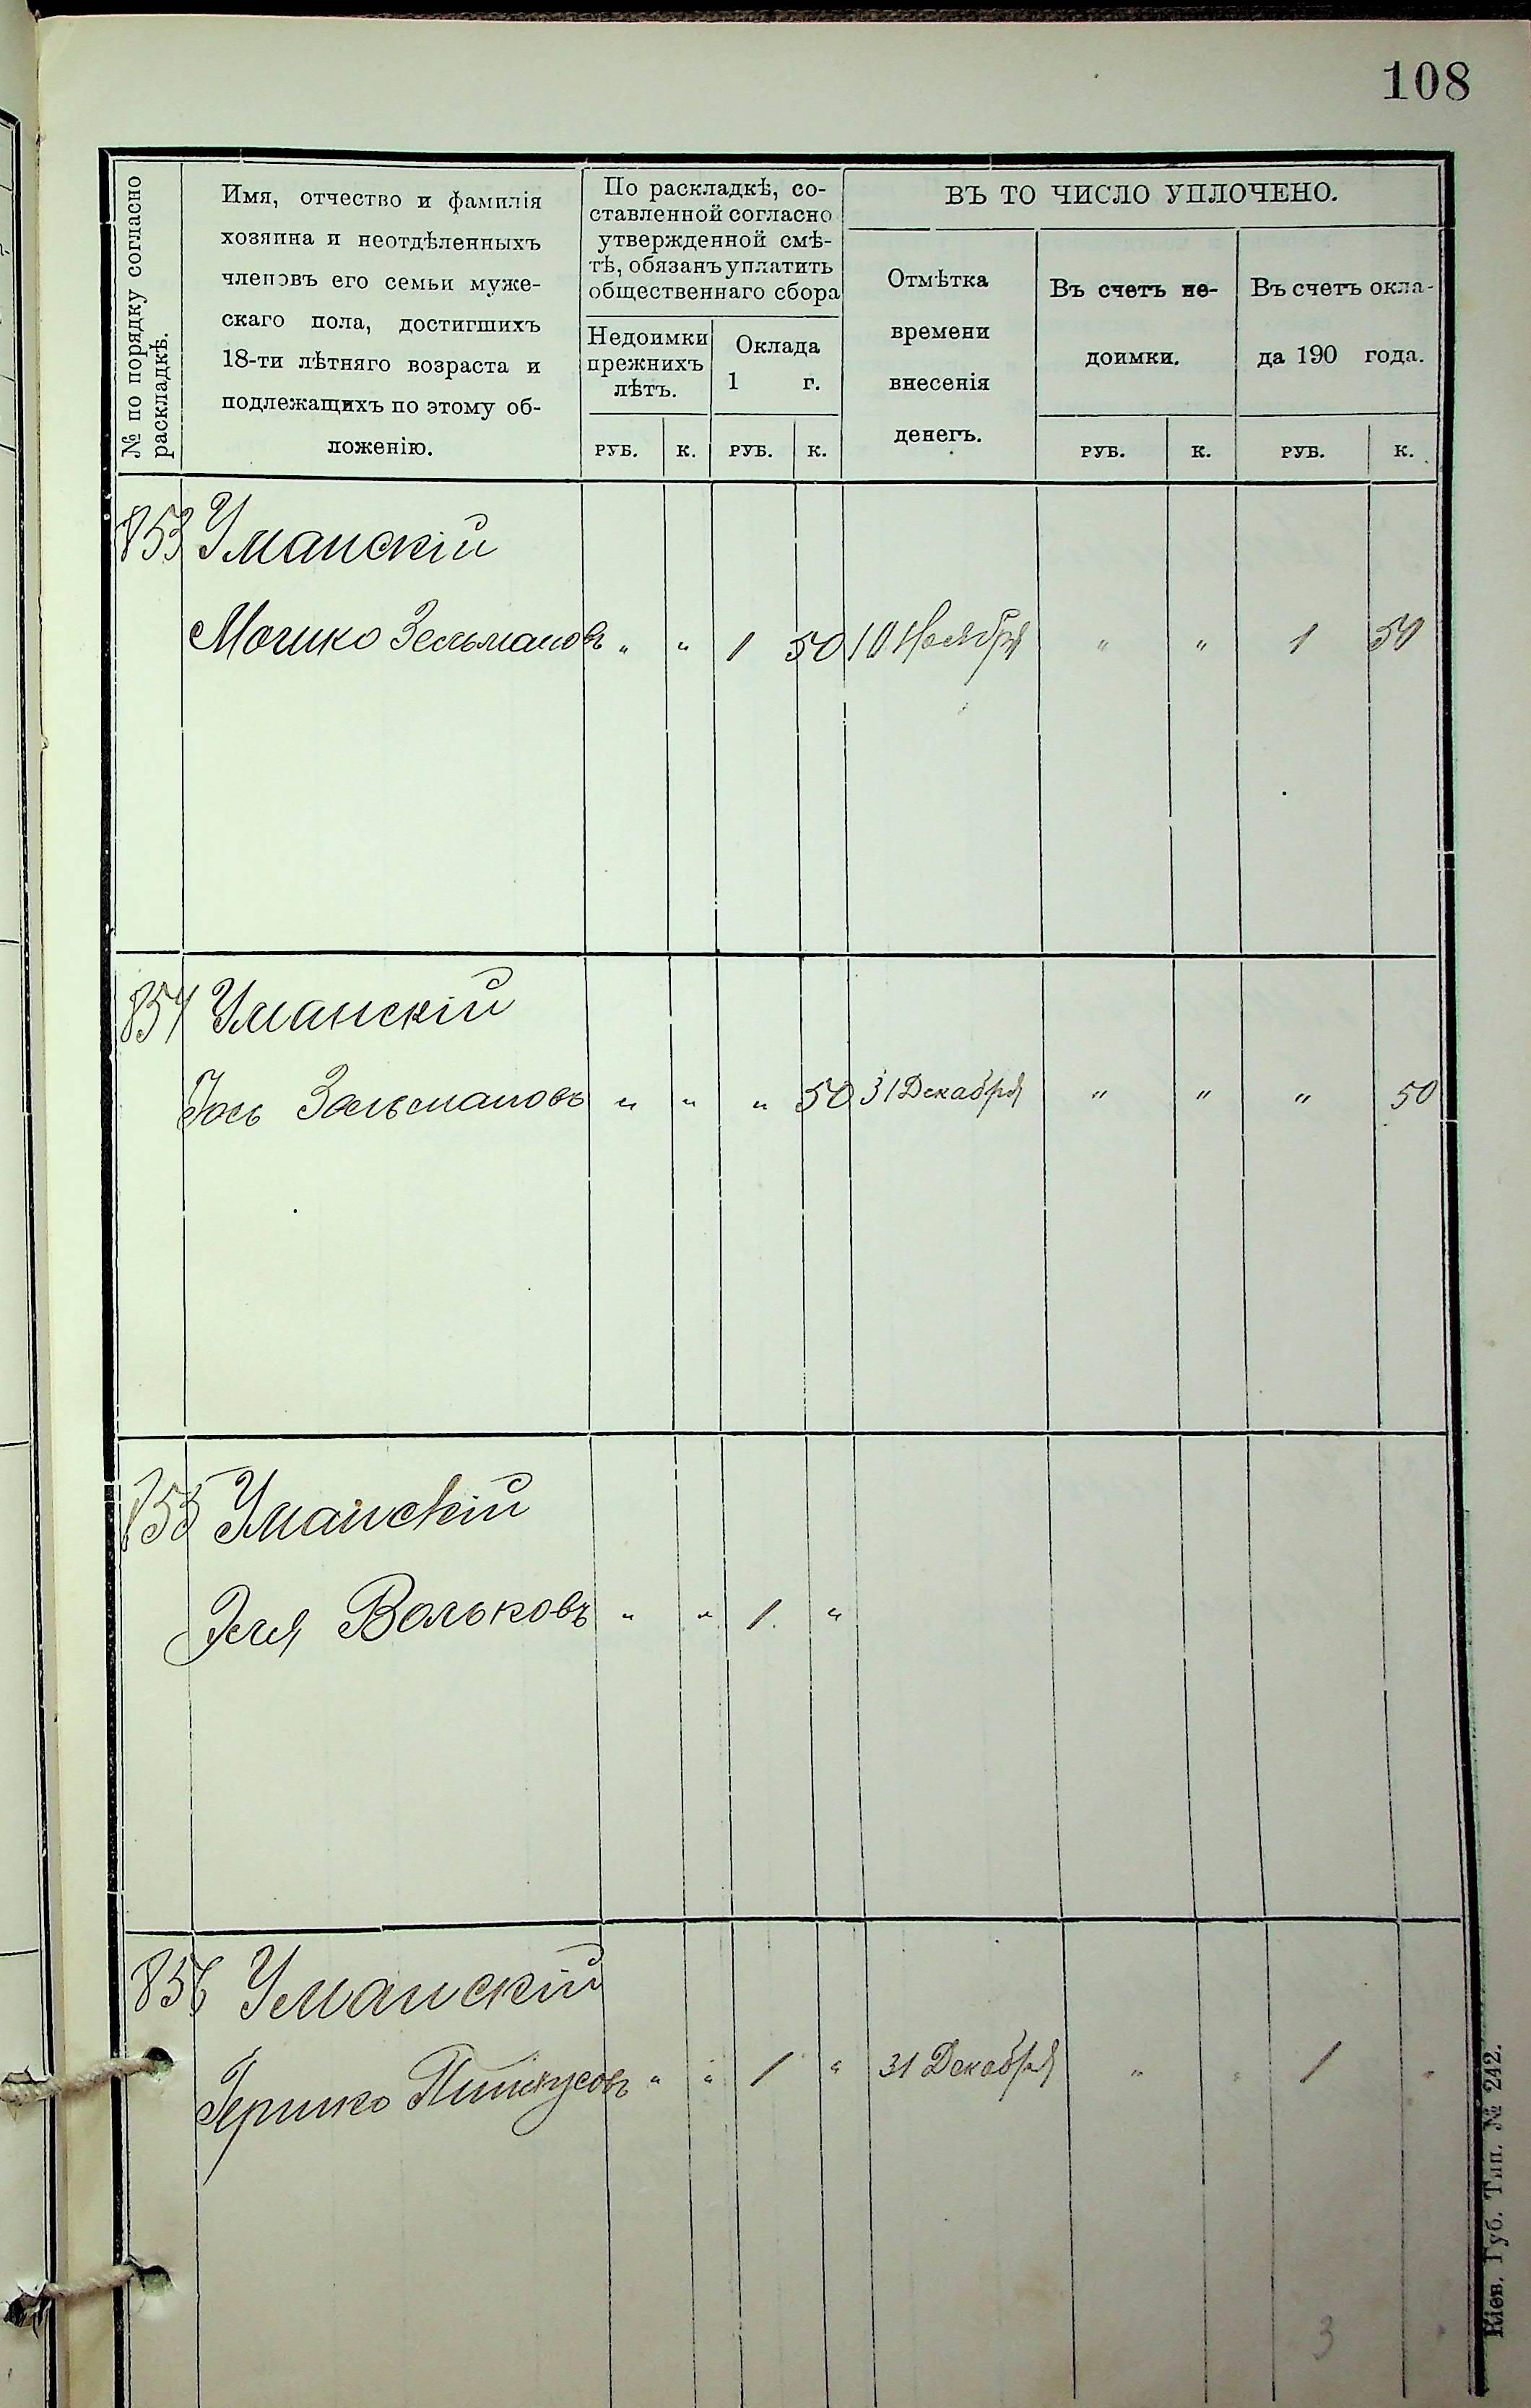 108
№ по порядку согласно
раскладкѣ.
Имя, отчество и фамилія
хозяина и неотдѣленныхъ
членовъ его семьи муже-
скаго пола, достигшихъ
18-ти лѣтняго возраста и
подлежащихъ по этому об-
ложенію.
По раскладкѣ, со-
ставленной согласно
утвержденной смѣ-
тѣ, обязанъ уплатить
общественнаго сбора
Недоимки
прежнихъ
лѣтъ.
Оклада
1 г.
ВЪ ТО ЧИСЛО УПЛОЧЕНО.
Отмѣтка
времени
внесенія
денегъ.
Въ счетъ не-
доимки.
Въ счетъ окла-
да 190 года.
РУБ. К. РУБ. К. РУБ. К. РУБ. К.
853 Уманскій
Мошко Зельмановъ " " 1 50 10 Ноября " " 1 50
854 Уманскій
Іось Зельмановъ " " " 50 31 Декабря " " " 50
855 Уманскій
Эля Вольковъ " " 1 "
856 Уманскій
Гершко Пинкусовъ " " 1 " 31 Декабря " " 1 "
3
Кіев. Губ. Тип. № 242.